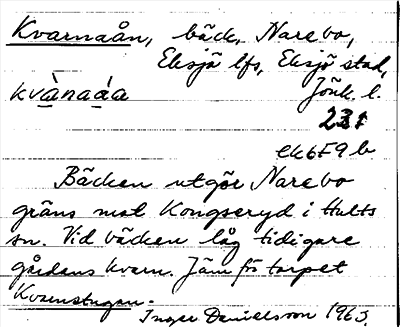 Kvarnaån, bäck, Narebo,
Eksjö lfs, Eksjö stad,
kvànaáa Jönk. l.
231
ek 6F9b
Bäcken utgör Narebo
gräns mot Kongseryd i Hults
sn. Vid bäcken låg tidigare
gårdens kvarn. Jämför torpet
Kvarnstugan.
Inger Danielsson 1963.